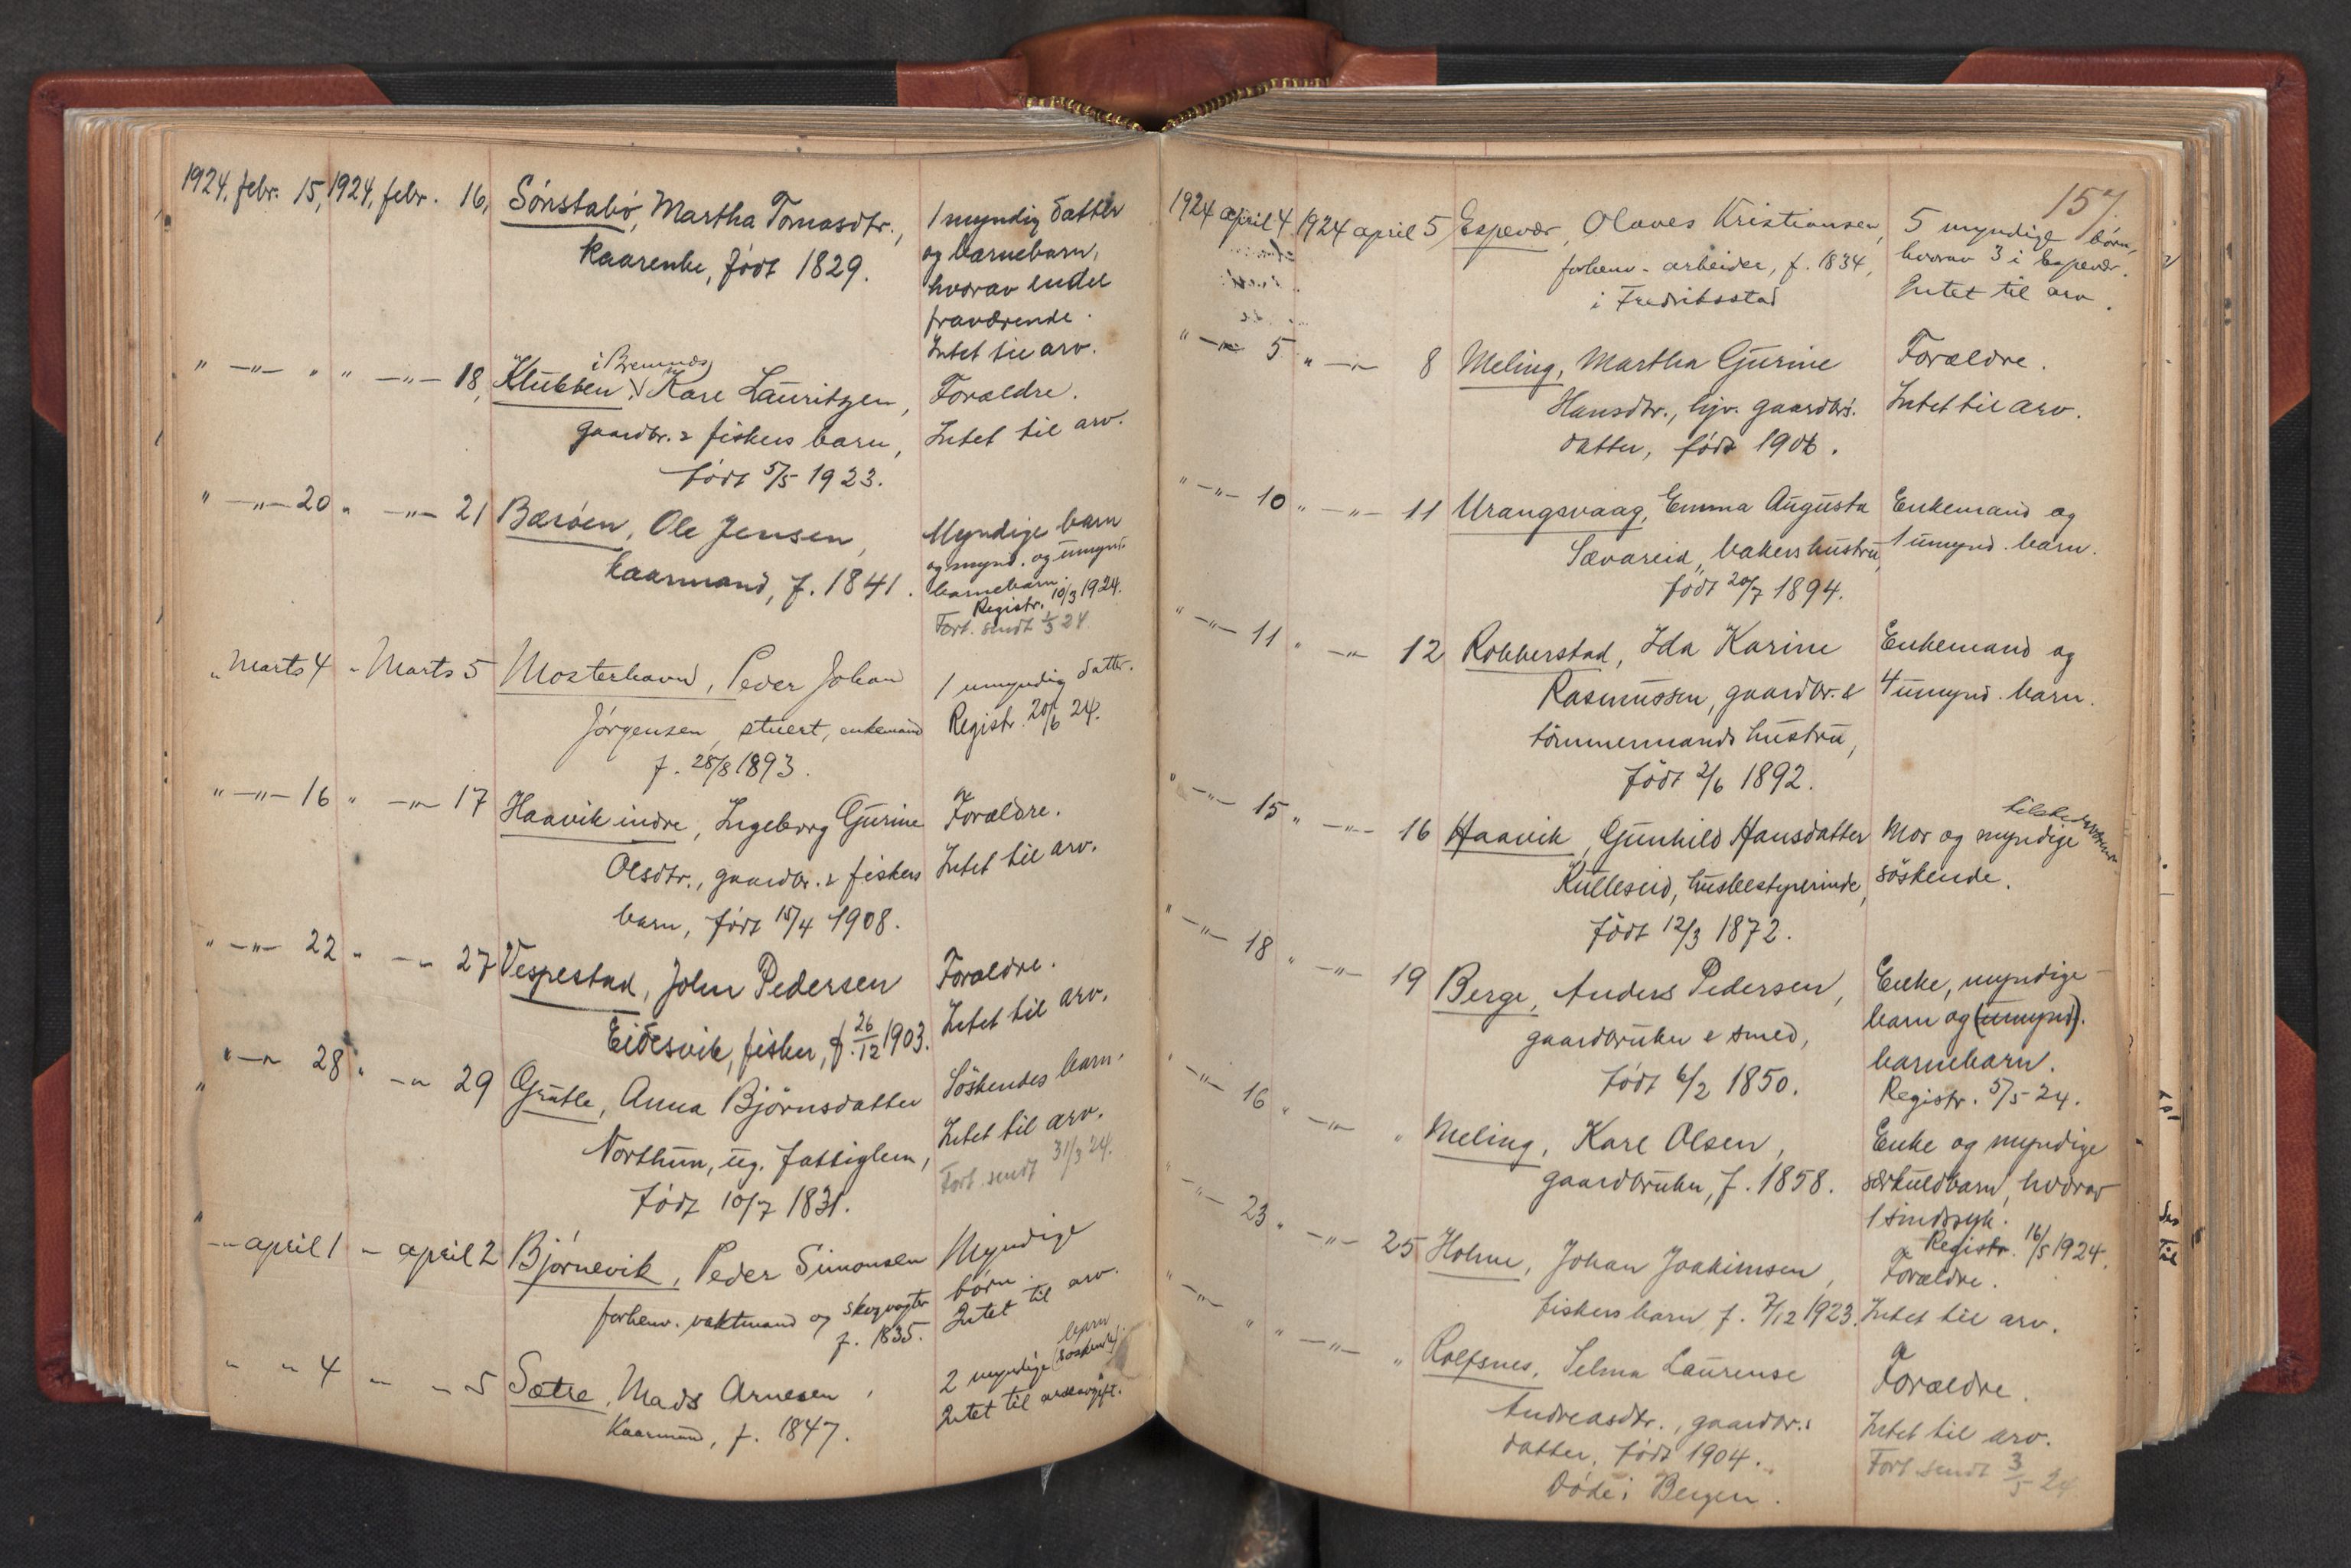 1924. febr. 15, 1924. febr. 16, Sönstabö, Martha Tomasdtr., 1 myndig datter
kaarenke, född 1829. og barnebarn,
hvorav endel
fraværende.
Intet til arv.
" —"— " " —"— 18, Klubben i Bremnes, Kare Lauritzen, Forældre.
gaardbr. & fiskers barn, Intet til arv.
født 5/5 1923.
" —"— 20 " —"— 21 Bærøen, Ole Jensen, Myndige barn
kaarmand, f. 1841. og mynd. og umynd.
barnebarn.
Registr. 10/3 1924.
Fort. sendt 1/3 24
" Marts 4 " Marts 5 Mosterhavn, Peder Johan 1 umyndig datter.
Jörgensen, stuert, enkemand Registr. 20/6 24.
f. 28/8 1893.
" —"— 16 " —"— 17 Haavik indre, Ingeborg Gurine Forældre.
Olsdtr., gaardbr. & fiskers Intet til arv.
barn, født 15/4 1908.
" —"— 22 " —"— 27 Vespestad, John Pedersen Forældre.
Eidesvik, fisker, f. 26/12 1903. Intet til arv.
" —"— 28 " —"— 29 Grutle, Anna Björnsdatter Söskendes barn.
Northun, ug. fattiglem, Intet til arv.
født 10/7 1831. Fort. sendt 31/3 24.
—"— april 1 " april 2 Bjørnevik, Peder Simonsen Myndige
forhenv. vaktmand og skogvogter børn.
f. 1835. Intet til arv.
" " 4 " " 5 Sætre, Mads Arnesen, 2 myndige søskende
Kaarmand, f. 1847. Intet til arveavgift.
157.
1924 april 4 1924 april 5 Espevær, Olaves Kristiansen, 5 myndige børn,
forhenv. arbeider, f. 1834, hvorav 3 i Espevær.
i Fredriksstad Intet til arv.
" —"— 5 " —"— 8 Meling, Martha Gurine Forældre.
Hansdtr., hjv. gaardbrs. Intet til arv.
datter, født 1906.
" —"— 10 " —"— 11 Urangsvaag, Emma Augusta Enkemand og
Sævareid, bakers hustru, 1 umynd. barn.
født 20/7 1894.
" —"— 11 " —"— 12 Robberstad, Ida Karine Enkemand og
Rasmussen, gaardbr. & 4 umynd. barn.
tömmermands hustru,
født 2/6 1892.
" —"— 15 " —"— 16 Haavik, Gunhild Hansdatter Mor og myndige tilstedeværende
Kulleseid, husbestyrerinde, söskende.
født 12/3 1872.
" —"— 18 " —"— 19 Berge, Anders Pedersen, Enke, myndige
gaardbruker & smed, barn og (umynd).
født 6/2 1850. barnebarn.
Registr. 5/5 24.
" —"— 16 " —"— " Meling, Karl Olsen, Enke og myndige
gaardbruker, f. 1858. særkuldbarn, hvorav
1 sindssyk.
Registr. 16/5 1924.
" —"— 23 " —"— 25 Holme, Johan Joakimsen, Forældre.
fiskers barn f. 7/12 1923. Intet til arv.
" —"— " " —"— " Rolfsnes, Selma Laurense Forældre.
Andreasdtr., gaardbr.s Intet til arv.
datter, født 1904. Fort. sendt 3/5 24
Døde i Bergen.